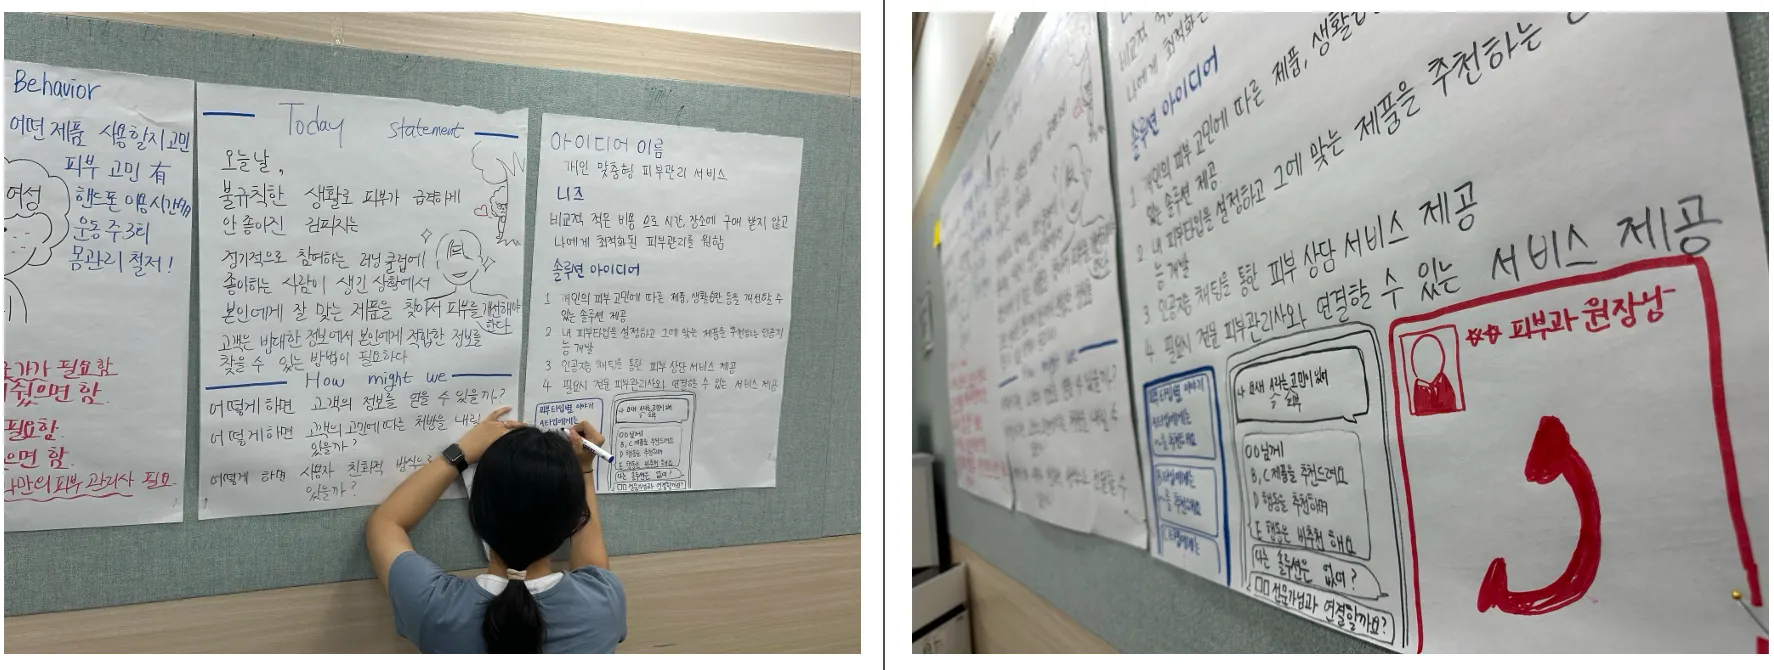 Behavior
어떤 제품 사용할지 고민
피부 고민 有
여성
핸드폰 이용시간
운동 주3회
몸관리 철저!
필요함
줬으면 함.
필요함.
으면 함.
나만의 피부 관리사 필요
Today statement
오늘날,
불규칙한 생활로 피부가 급격하게
안 좋아진 김피지는
정기적으로 참여하는 러닝 클럽에
좋아하는 사람이 생긴 상황에서
본인에게 잘 맞는 제품을 찾아서 피부를 개선해야
한다.
고객은 방대한 정보에서 본인에게 적합한 정보를
찾을 수 있는 방법이 필요하다
How might we
어떻게 하면 고객의 정보를 얻을 수 있을까?
어떻게 하면 고객의 고민에 따른 처방을 내릴
있을까?
어떻게 하면 사용자 친화적
있을까?
아이디어 이름
개인 맞춤형 피부관리 서비스
니즈
비교적 적은 비용으로 시간, 장소에 구애 받지 않고
나에게 최적화된 피부관리를 원함
솔루션 아이디어
1 개인의 피부 고민에 따른 제품, 생활습관 등을 개선할 수
있는 솔루션 제공
2 내 피부타입을 설정하고 그에 맞는 제품을 추천하는 인공지
능 개발
3 인공지능 채팅을 통한 피부 상담 서비스 제공
4 필요시 전문 피부관리사와 연결할 수 있는 서비스 제공
피부타입별 이야기
A타입에게는
○○님께
B, C 제품을 추천드려요
D 행동을 추천하며
E 행동은 비추천 해요
다른 솔루션은 없어?
□□ 전문가님과 연결할까요?
비교적 적은
나에게 최적화
솔루션 아이디어
1 개인의 피부 고민에 따른 제품, 생활습
있는 솔루션 제공.
2 내 피부타입을 설정하고 그에 맞는 제품을 추천하는
능 개발
3 인공지능 채팅을 통한 피부 상담 서비스 제공
4 필요시 전문 피부관리사와 연결할 수 있는 서비스 제공
피부타입별 이야기
A타입에게는
~를 추천드려요
B타입에게는
~를 추천드려요
C타입에게는
나 요새 고민이 있어
○○님께
B, C 제품을 추천드려요
D 행동을 추천하며
E 행동은 비추천 해요
다른 솔루션은 없어?
□□ 전문가님과 연결할까요?
☆☆ 피부과 원장님